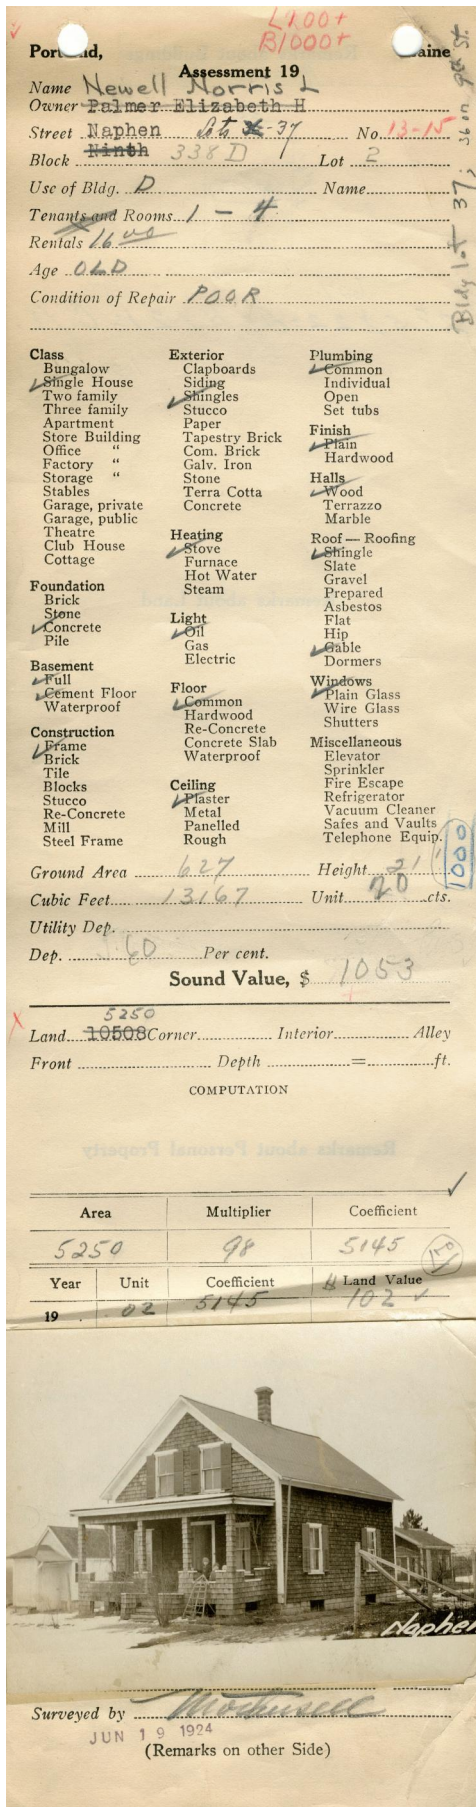 L100+
B1000+
Portland, Maine
Assessment 19
Name Newell Norris L
Owner Palmer Elizabeth H
Street Naphen Lots 37 No. 13-15
Block Ninth 338 D Lot 2
Use of Bldg. D Name
Tenants and Rooms 1 - 4
Rentals 16 00
Age OLD
Condition of Repair POOR
Bldg lot 37; 36 on 9th St.
Class
Bungalow
Single House
Two family
Three family
Apartment
Store Building
Office "
Factory "
Storage "
Stables
Garage, private
Garage, public
Theatre
Club House
Cottage
Foundation
Brick
Stone
Concrete
Pile
Basement
Full
Cement Floor
Waterproof
Construction
Frame
Brick
Tile
Blocks
Stucco
Re-Concrete
Mill
Steel Frame
Exterior
Clapboards
Siding
Shingles
Stucco
Paper
Tapestry Brick
Com. Brick
Galv. Iron
Stone
Terra Cotta
Concrete
Heating
Stove
Furnace
Hot Water
Steam
Light
Oil
Gas
Electric
Floor
Common
Hardwood
Re-Concrete
Concrete Slab
Waterproof
Ceiling
Plaster
Metal
Panelled
Rough
Plumbing
Common
Individual
Open
Set tubs
Finish
Plain
Hardwood
Halls
Wood
Terrazzo
Marble
Roof — Roofing
Shingle
Slate
Gravel
Prepared
Asbestos
Flat
Hip
Gable
Dormers
Windows
Plain Glass
Wire Glass
Shutters
Miscellaneous
Elevator
Sprinkler
Fire Escape
Refrigerator
Vacuum Cleaner
Safes and Vaults
Telephone Equip.
1000
Ground Area 627 Height 21
Cubic Feet 13167 Unit 20 cts.
Utility Dep.
Dep. 60 Per cent.
Sound Value, $ 1053
5250
Land 10508 Corner Interior Alley
Front Depth = ft.
COMPUTATION
Area Multiplier Coefficient
5250 98 5145
Year Unit Coefficient Land Value
19 .02 5145 102
Naphen
Surveyed by
JUN 19 1924
(Remarks on other Side)